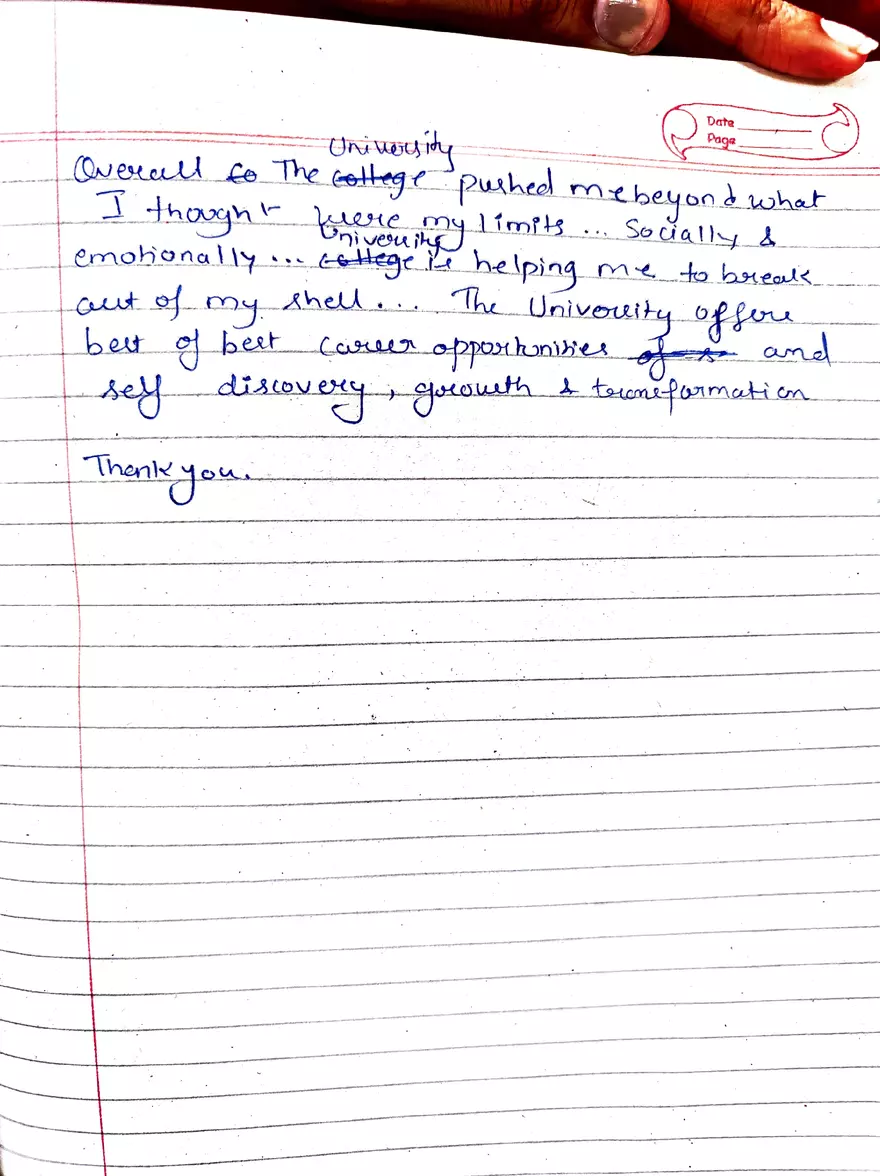 Date
Page
University
Overall co The college pushed me beyond what
I thought were my limits ... Socially &
University
emotionally ... college is helping me to break
out of my shell... The University offers
best of best career opportunities and
self discovery, growth & transformation
Thank you.